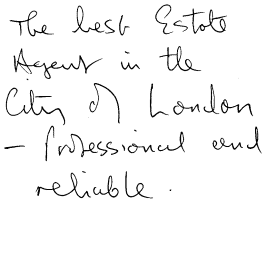 The best Estate
Agent in the
City of London
– Professional and
reliable.